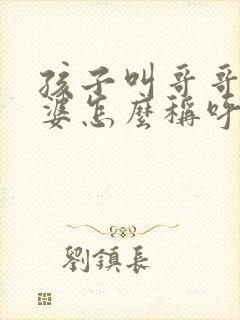 孩子叫哥哥
婆怎麼稱呼
劉鎮長